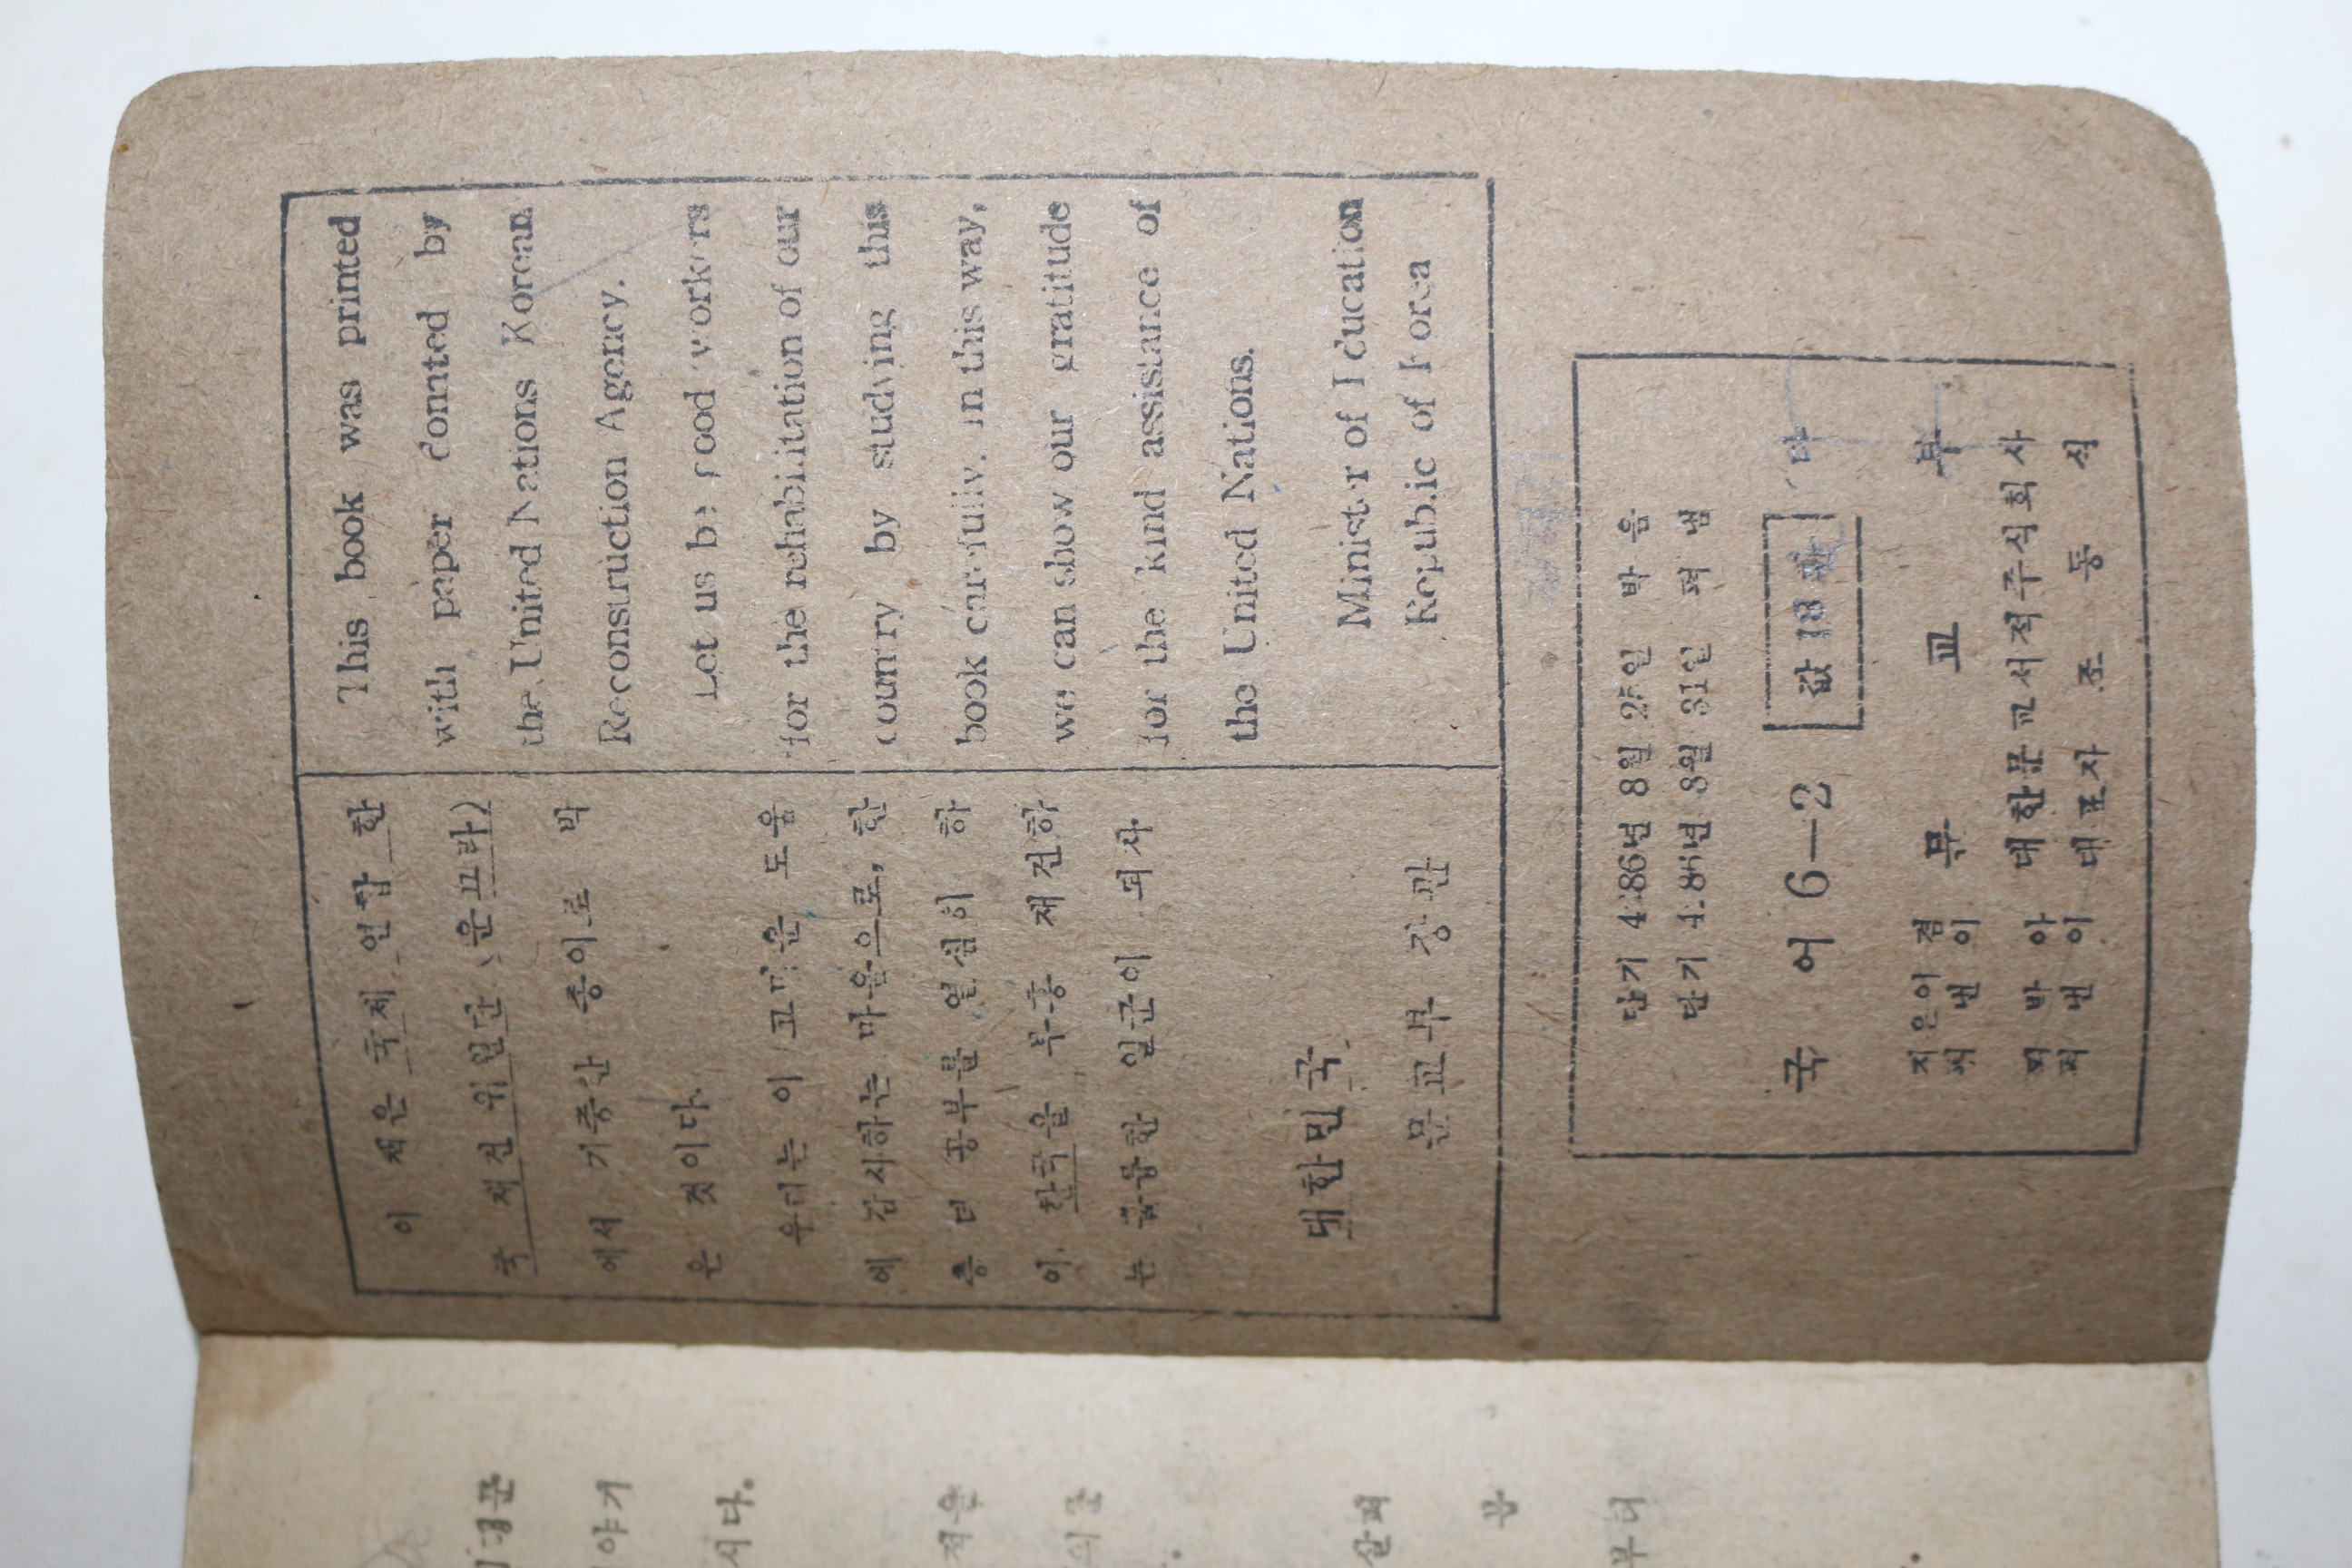 이 책은 국제 연합 한
국 재건 위원단 (운끄라)
에서 기증한 종이로 박
은 것이다.
우리는 이 고마운 도움
에 감사하는 마음으로, 한
층 더 공부를 열심히 하
여, 한국을 부흥 재건하
는 훌륭한 일군이 되자
대한민국
문교부 장관
This book was printed
with paper donated by
the United Nations Korean
Reconstruction Agency.
Let us be good workers
for the rehabilitation of our
country by studying this
book carefully. in this way,
we can show our gratitude
for the kind assistance of
the United Nations.
Minister of Education
Republic of Korea
단기 4286년 8월 25일 박음
단기 4286년 8월 31일 펴냄
국 어 6—2
값 18
지은이 겸
펴낸이 문 교 부
박아
펴낸이 대한문교서적주식회사
대표자 조 동 식
야기
시다.
적은
살펴
부터